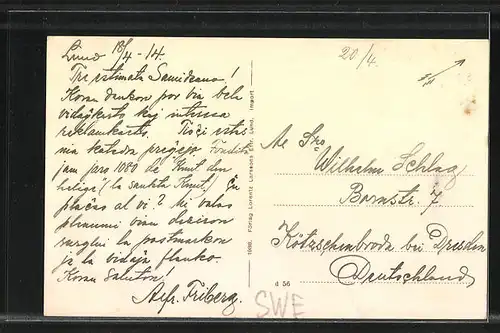 Lund 18/4 - 14.
Tre estimata Samideano!
Koran dankon por via bela
vidaĵkarto kaj interesa
reklamkarto. Tiĉi estas
nia katedra preĝejo. Fondita
jam jaro 1080 de Knut den
helige (la sankta Knut). Ĉu
plaĉas al vi? Mi volas
plenumi vian deziron
surglui la postmarkon
je la vidaĵa flanko.
Koran Saluton!
Alfr. Friberg.
Förlag Lorentz Larssons Eftr. Lund. Import
d 56
20/4
Al Sro
Wilhelm Schlag
Bornstr. 7
Kötzschenbroda bei Dresden
Deutschland
SWE